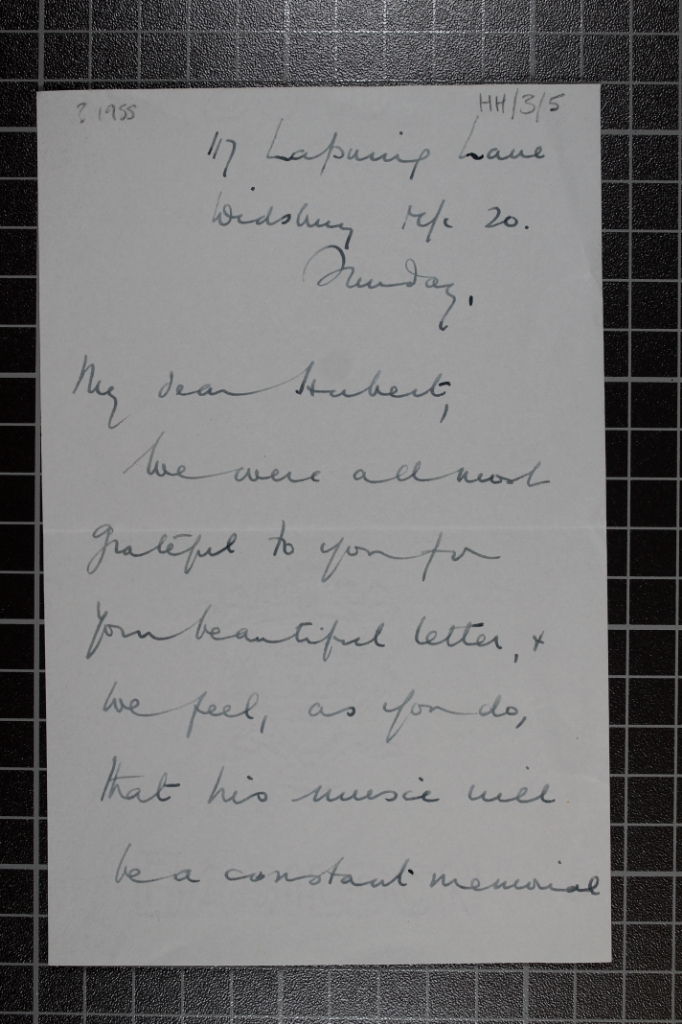 ? 1955
HH/3/5
117 Lapwing Lane
Didsbury M/c 20.
Sunday.
My dear Hubert,
We were all most
grateful to you for
your beautiful letter, +
we feel, as you do,
that his music will
be a constant memorial